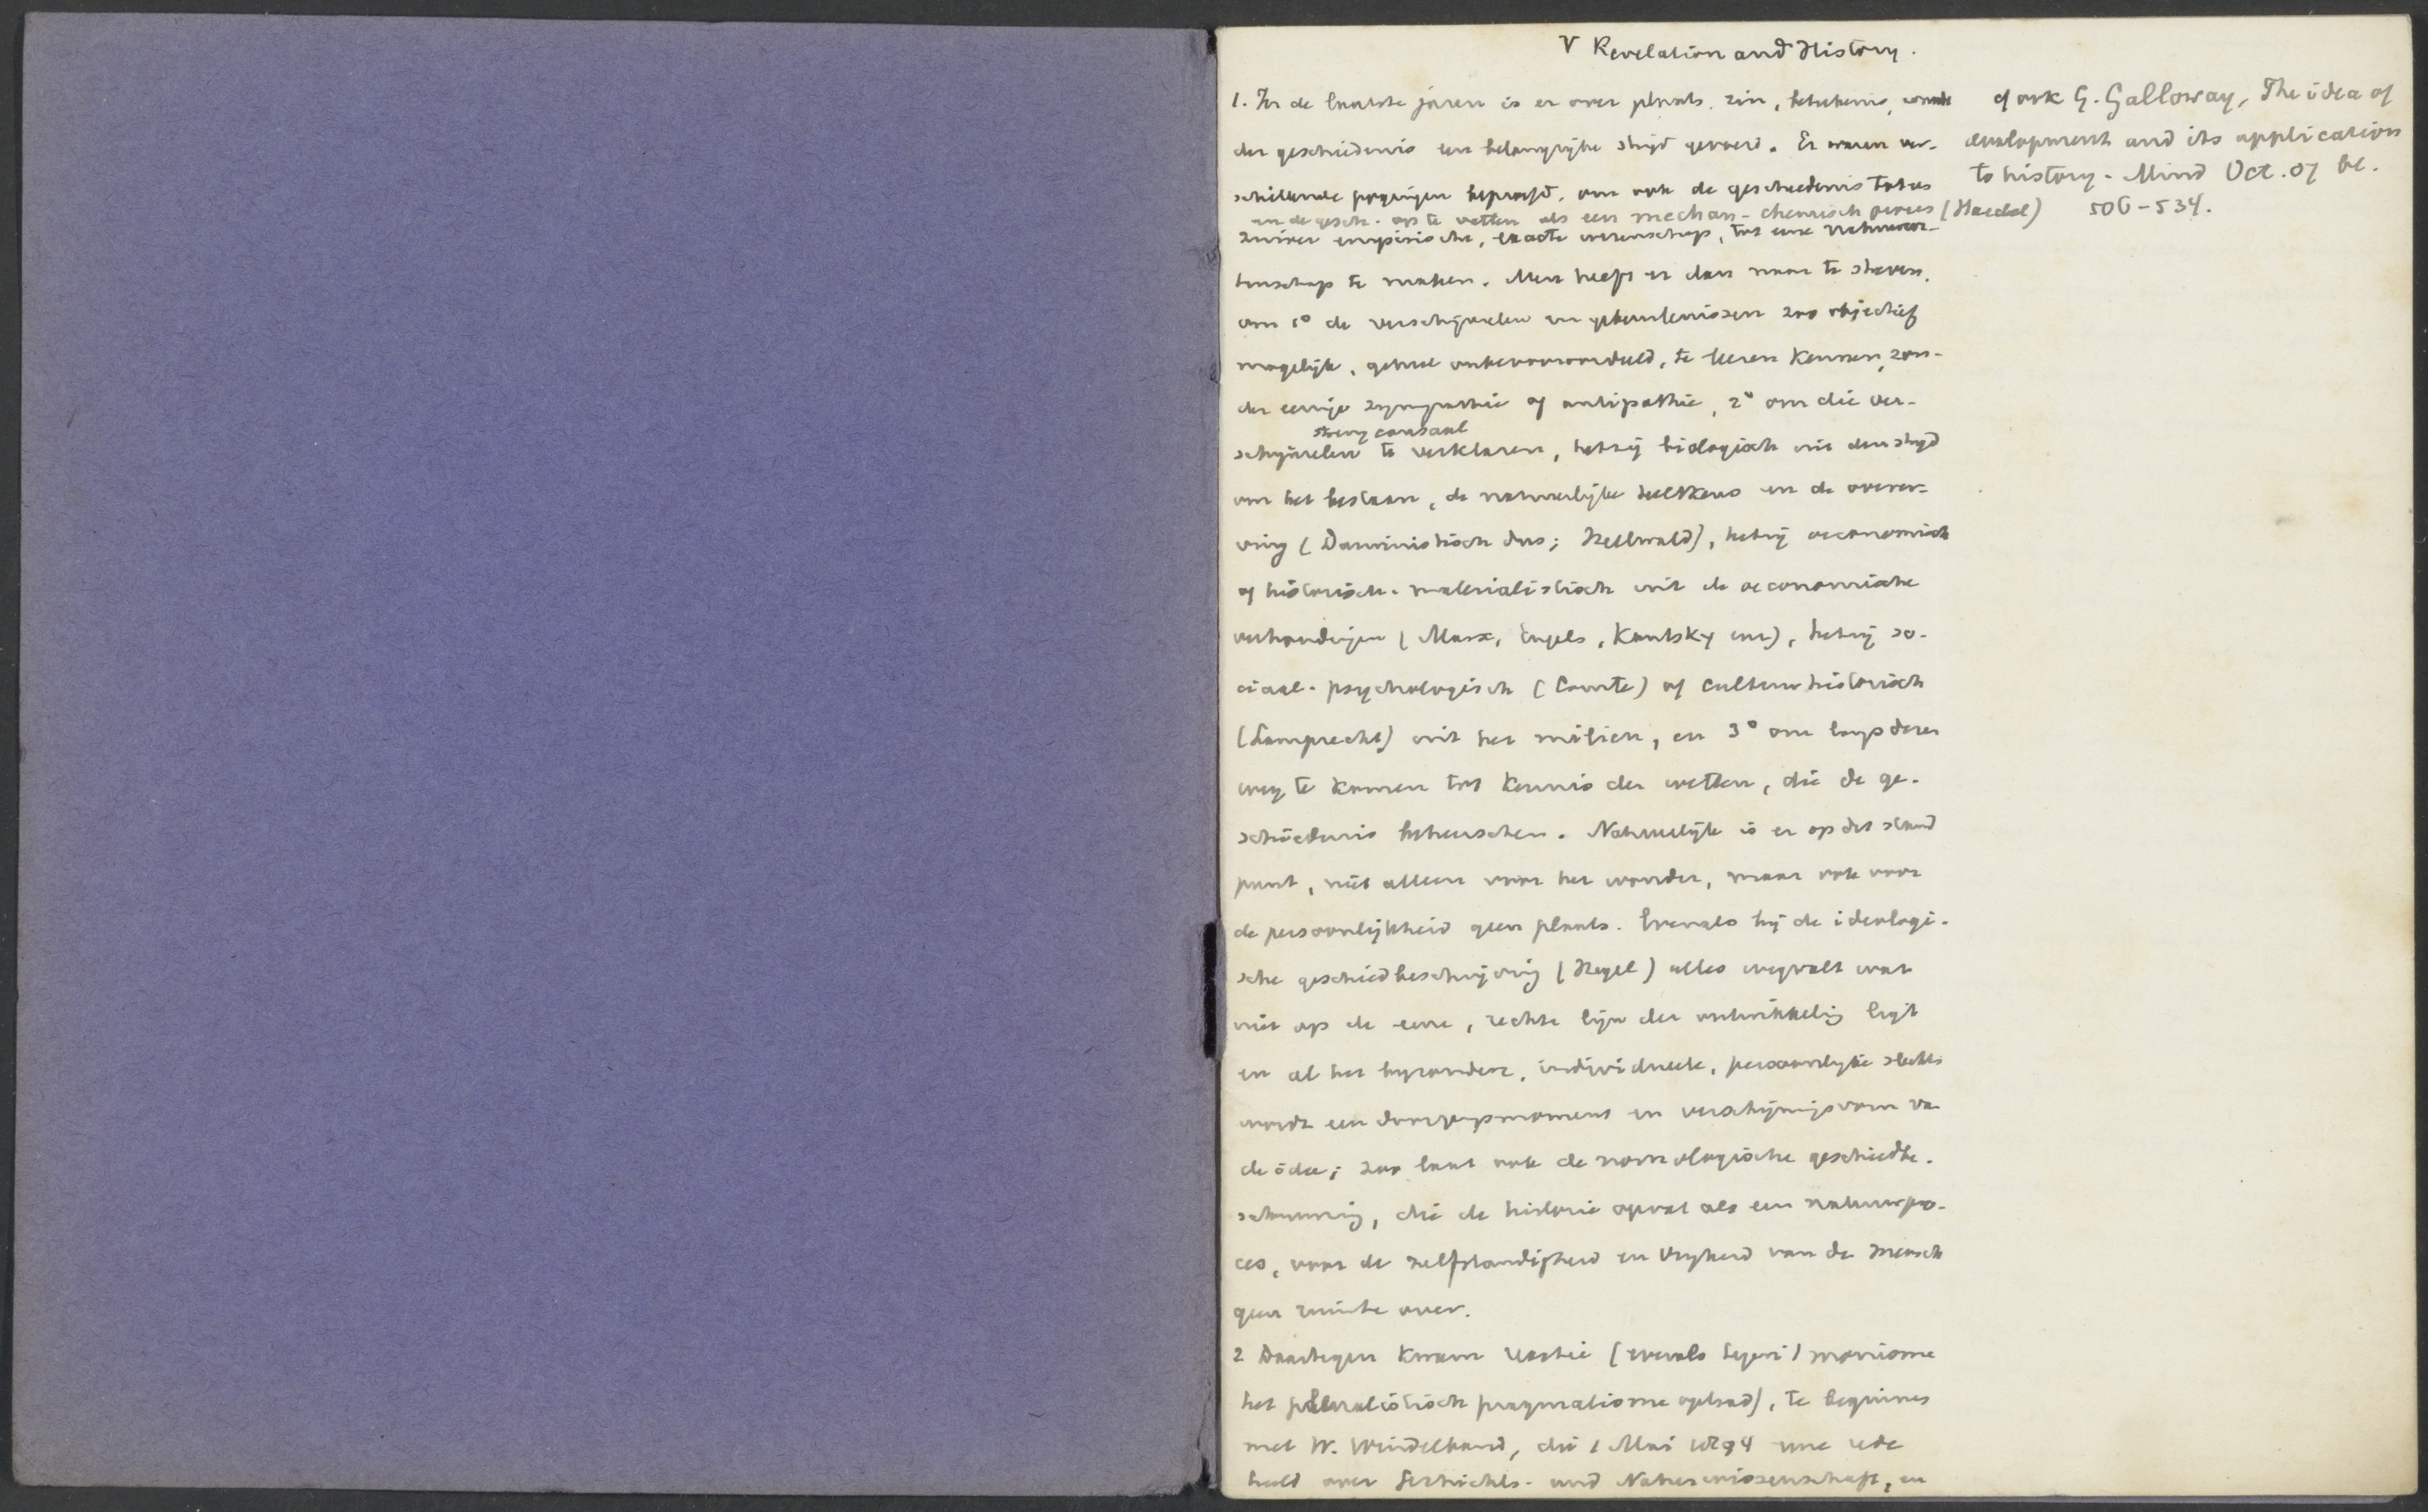 V Revelation and History.
1. In de laatste jaren is er over plaats, zin, beteekenis, waarde
der geschiedenis een belangrijke strijd gevoerd. Er waren ver-
schillende pogingen beproefd, om ook de geschiedenis tot een
en de gesch. op te vatten als een mechan-chemisch proces (Haeckel)
zuiver empirische, exacte wetenschap, tot eene natuurwe-
tenschap te maken. Men heeft er dan naar te streven,
om 1° de verschijnselen en gebeurtenissen zoo objectief
mogelijk, geheel onbevooroordeeld, te leeren kennen, zon-
der eenige sympathie of antipathie, 2° om die ver-
streng causaal
schijnselen te verklaren, hetzij biologisch uit den strijd
om het bestaan, de natuurlijke teeltkeus en de overer-
ving (Darwinistisch dus; Hellwald), hetzij oeconomisch
of historisch-materialistisch uit de oeconomische
verhoudingen (Marx, Engels, Kautsky enz), hetzij so-
ciaal-psychologisch (Comte) of cultuurhistorisch
(Lamprecht) uit het milieu, en 3° om langs dezen
weg te komen tot kennis der wetten, die de ge-
schiedenis beheerschen. Natuurlijk is er op dit stand
punt, niet alleen voor het wonder, maar ook voor
de persoonlijkheid geen plaats. Evenals bij de ideologi-
sche geschiedbeschrijving (Hegel) alles wegvalt wat
niet op de eene, rechte lijn der ontwikkeling ligt
en al het byzondere, individueele, persoonlijke slechts
wordt een doorgangsmoment en verschijningsvorm van
de idee; zoo laat ook de nomologische geschiedbe-
schouwing, die de historie opvat als een natuurpro-
ces, voor de zelfstandigheid en vrijheid van de mensch
geen ruimte over.
2 Daartegen kwam reactie (evenals tegen 't monisme
het pluralistisch pragmatisme optrad), te beginnen
met W. Windelband, die 1 Mai 1894 eene rede
hield over Geschichts- und Naturwissenschaft, en
cf ook G. Galloway, The idea of
development and its application
to history. Mind Oct. 07 bl.
506-534.